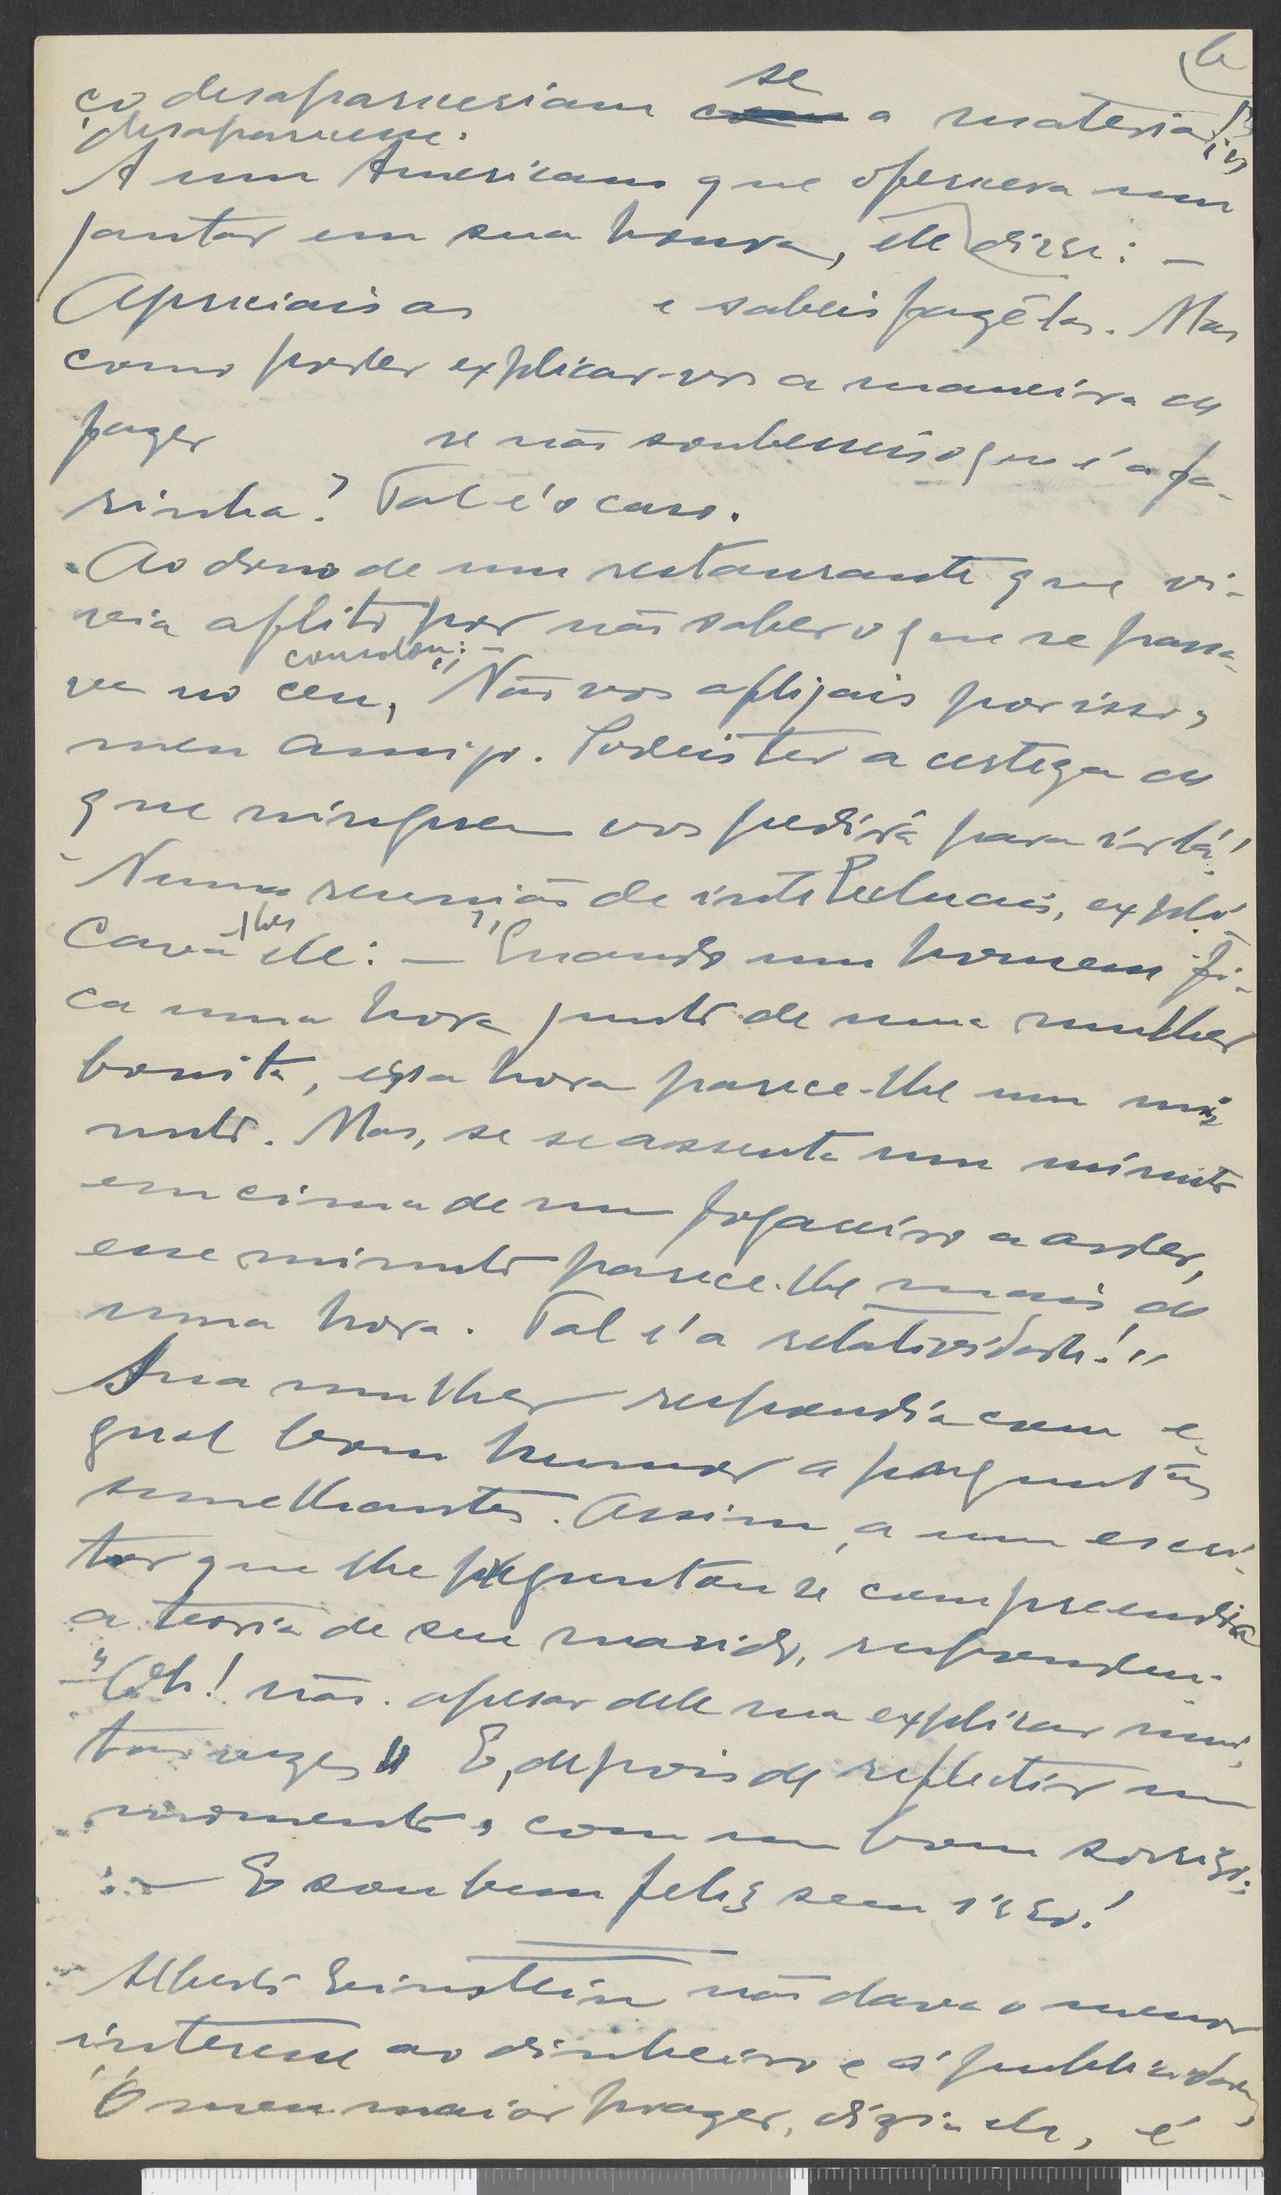 ço desapareceriam se a materia
desaparecesse.
A um Americano que oferecera um
jantar em sua honra, ele disse: —
Apreciais as e sabeis fazê-las. Mas
como poder explicar-vos a maneira de
fazer se não soubesseis o que é a fa-
rinha? Tal é o caso.
Ao dono de um restaurante que vi-
via aflito por não saber o que se passa-
consolou: —
va no ceu, "Não vos aflijais por isso,
meu amigo. Podeis ter a certeza de
que ninguem vos pedirá para ir lá!
Numa reunião de intelectuais, expli-
cava-lhes ele: — "Quando um homem fi-
ca uma hora junto de uma mulher
bonita, essa hora parece-lhe um mi-
nuto. Mas, se se assenta um minuto
em cima de um fogareiro a arder,
esse minuto parece-lhe mais de
uma hora. Tal é a relatividade!"
Sua mulher respondia com e-
gual bom humor a perguntas
semelhantes. Assim, a um escri-
tor que lhe preguntou se compreendia
a teoria de seu marido, respondeu:
— "Oh! não. apesar dele ma explicar mui-
tas vezes" E, depois de reflectir um
momento, com um bom sorriso:
— E sou bem feliz sem isso!
Alberto Einstein não dava o menor
interesse ao dinheiro e á publicidade,
"O meu maior prazer, dizia ele, é